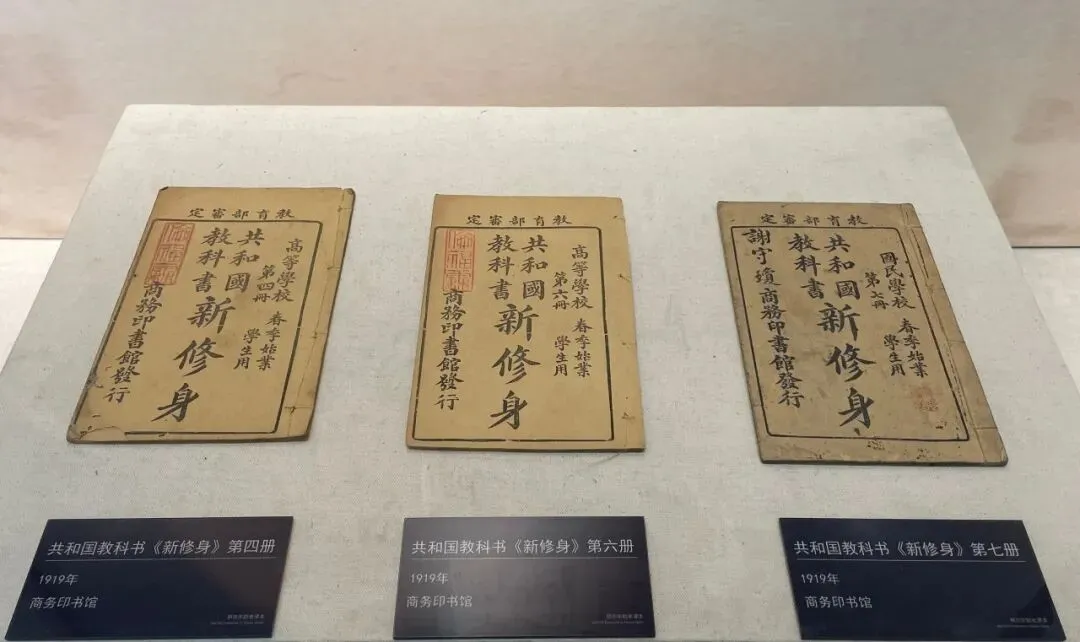 教育部審定
高等學校
第四冊
春季始業
學生用
共和國
教科書
新修身
商務印書館發行
教育部審定
高等學校
第六冊
春季始業
學生用
共和國
教科書
新修身
商務印書館發行
教育部審定
國民學校
第七冊
春季始業
學生用
共和國
教科書
新修身
謝守瓊
商務印書館發行
共和国教科书《新修身》第四册
1919年
商务印书馆
共和国教科书《新修身》第六册
1919年
商务印书馆
共和国教科书《新修身》第七册
1919年
商务印书馆